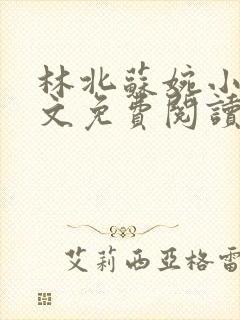 林北蘇婉小
文免費閱讀
艾莉西亞格雷